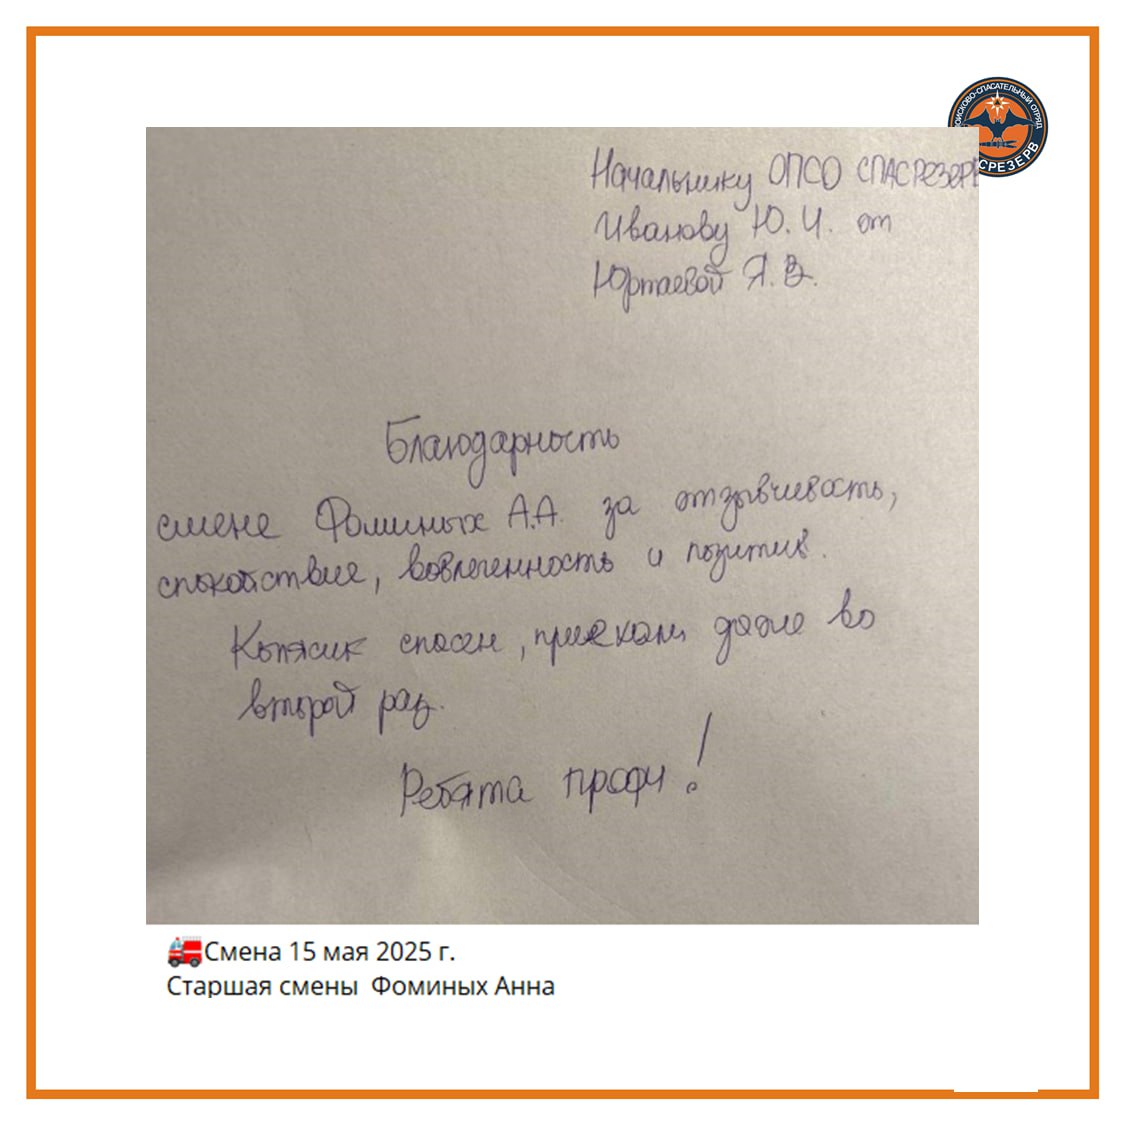 ПОИСКОВО-СПАСАТЕЛЬНЫЙ ОТРЯД
СРЕЗЕРВ
Начальнику ОПСО СПАСРЕЗЕРВ
Иванову Ю.И. от
Юртаевой Я.В.
Благодарность
смене Фоминых А.А. за отзывчивость,
спокойствие, вовлеченность и позитив.
спасен, приехали даже во
второй раз.
Ребята профи!
Смена 15 мая 2025 г.
Старшая смены Фоминых Анна